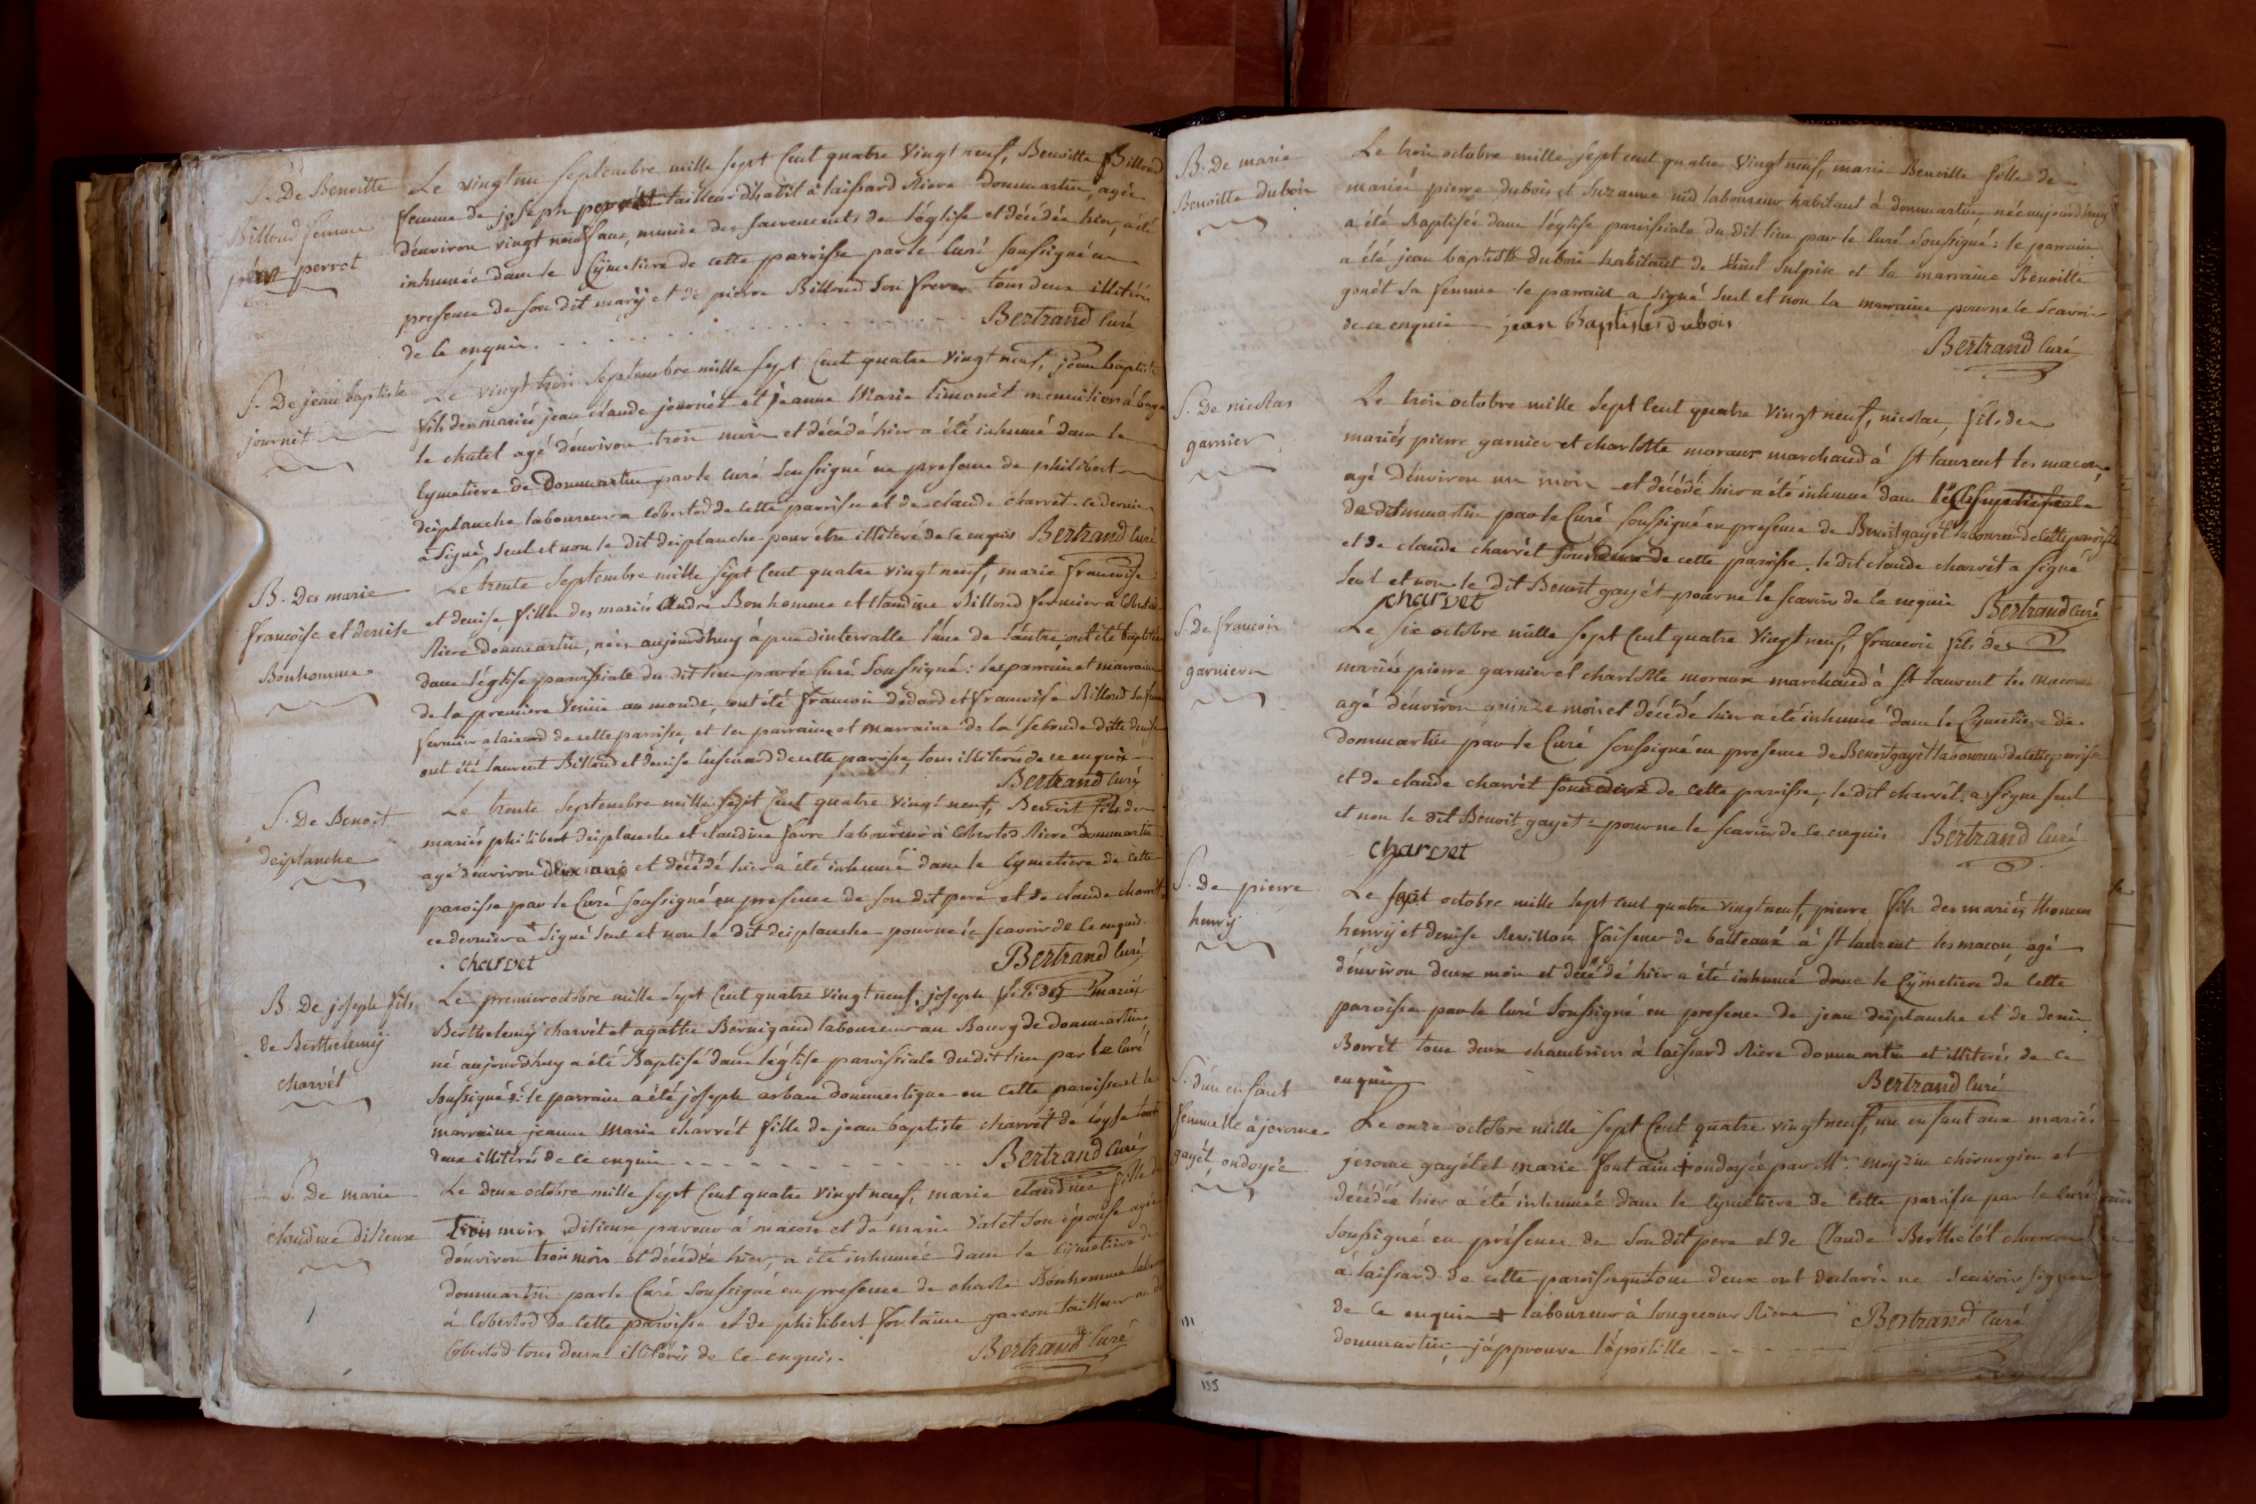 S. De Benoitte
Billoud femme
perrot
Le vingt un septembre mille sept Cent quatre vingt neuf, Benoitte Billoud
femme de joseph perrot tailleur d'habit à laissard Riere dommartin, agée
d'environ vingt neuf ans, munie des sacrements de l'église et décédée hier, a été
inhumée dans le Cymetiere de cette paroisse par le Curé soussigné en
presence de son dit mary et de pierre Billoud son frere tous deux illiterés
de ce enquis.
Bertrand Curé
S. De jean baptiste
journet
Le vingt trois septembre mille sept Cent quatre vingt neuf, jean baptiste
fils des mariés jean claude journet et jeanne Marie timonet à bagé
le chatel agé d'environ trois mois et décédé hier a été inhumé dans le
Cymetiere de Dommartin par le curé soussigné en presence de philibert
deiplanche laboureur a Cobertod de cette paroisse et de claude charvet ce dernier
a signé seul et non le dit deiplanche pour étre illiteré de ce enquis Bertrand Curé
B. Des marie
francoise et denise
Bonhomme
Le trente septembre mille sept Cent quatre vingt neuf, marie francoise
et denise filles des mariés andré Bonhomme et Claudine Billoud fermier à
Riere dommartin, nées aujourdhuy à peu d'intervalle l'une de l'autre, ont été baptisées
dans l'église paroissiale du dit lieu par le Curé soussigné: les parrain et marraine
de la premiere venüe au monde, ont été francois dedard et francoise Billoud sa femme
fermier a laissard de cette paroisse, et les parrain et marraine de la seconde ditte denise
ont été laurent Billoud et denise de cette paroisse, tous illiterés de ce enquis
Bertrand Curé
S. De Benoit
deiplanche
Le trente septembre mille sept Cent quatre vingt neuf, Benoit fils des
mariés philibert deiplanche et claudine favre laboureur à Cobertod Riere Dommartin
agé d'environ deux ans et décédé hier a été inhumé dans le Cymetiere de cette
paroisse par le Curé soussigné en presence de son dit pere et de claude charvet
ce dernier a signé seul et non le dit deiplanche pour ne le scavoir de ce enquis.
charvet
Bertrand Curé
B. De joseph fils
de Berthelemy
charvet
Le premier octobre mille sept Cent quatre vingt neuf, joseph fils des mariés
Berthelemy charvet et agathe Bernigaud laboureur au Bourg de dommartin
né aujourdhuy a été Baptisé dans l'église paroissiale dudit lieu par le Curé
soussigné: le parrain a été joseph arban dommestique en cette paroisse et la
marraine jeanne Marie charvet fille de jean baptiste charvet de tous
deux illiterés de ce enquis
Bertrand Curé
S. de marie
claudine disieux
Le deux octobre mille sept Cent quatre vingt neuf, marie claudine fille de
disieux paveur à macon et de marie Valet son épouse agée
d'environ trois mois et décédée hier, a été inhumée dans le Cymetiere de
dommartin par le Curé soussigné en presence de charle Bonhomme
à Cobertod de cette paroisse et de philibert fontaine garcon tailleur au dit
Cobertod tous deux illiterés de ce enquis.
Bertrand Curé
B. De marie
Benoitte dubois
Le trois octobre mille sept cent quatre vingt neuf, marie Benoitte fille de
mariés pierre dubois et Suzanne laboureur habitant à dommartin, née aujourdhuy
a été Baptisée dans l'église paroissiale du dit lieu par le Curé soussigné: le parrain
a été jean baptiste dubois habitant de saint sulpice et la marraine Benoitte
gonet sa femme le parrain a signé seul et non la marraine pour ne le scavoir
de ce enquis jean baptiste dubois
Bertrand Curé
S. De nicolas
garnier
Le trois octobre mille sept Cent quatre vingt neuf, nicolas, fils des
mariés pierre garnier et charlotte moraux marchand à St laurent les macon,
agé d'environ un mois et décédé hier a été inhumé dans le
de dommartin par le Curé soussigné en presence de Benoit gayet laboureur de cette paroisse
et de claude charvet de cette paroisse. le dit claude charvet a signé
seul et non le dit Benoit gayet pour ne le scavoir de ce enquis Bertrand Curé
charvet
S. De francois
garnier
Le six octobre mille sept Cent quatre vingt neuf, francois fils des
mariés pierre garnier et charlotte moraux marchand à St laurent les macon
agé d'environ quinze mois et décédé hier a été inhumé dans le Cymetiere de
dommartin par le Curé soussigné en presence de Benoit gayet laboureur de cette paroisse
et de claude charvet de cette paroisse, le dit charvet a signé seul
et non le dit Benoit gayet pour ne le scavoir de ce enquis Bertrand Curé
charvet
S. de pierre
henry
Le sept octobre mille sept cent quatre vingt neuf, pierre fils des mariés thomas
henry et denise Revillon faiseur de batteaux à St laurent les macon, agé
d'environ deux mois et décédé hier a été inhumé dans le Cymetiere de cette
paroisse par le Curé soussigné en presence de jean deiplanche et de denis
Borret tous deux chambriers à laissard Riere dommartin et illiterés de ce
enquis
Bertrand Curé
S. d'un enfant
femmelle à jerome
gayet ondoyée
Le onze octobre mille sept Cent quatre vingt neuf un enfant aux mariés
jerome gayet et marie fontaine + ondoyée par Mr. moyzin chirurgien et
décédée hier a été inhumée dans le Cymetiere de cette paroisse par le Curé
soussigné en présence de son dit pere et de Claude Berthelet
à laissard de cette paroisse qui tous deux ont declaré ne scavoir signer
de ce enquis + laboureur à longecour Riere
dommartin, j'approuve l'apostille
Bertrand Curé
135